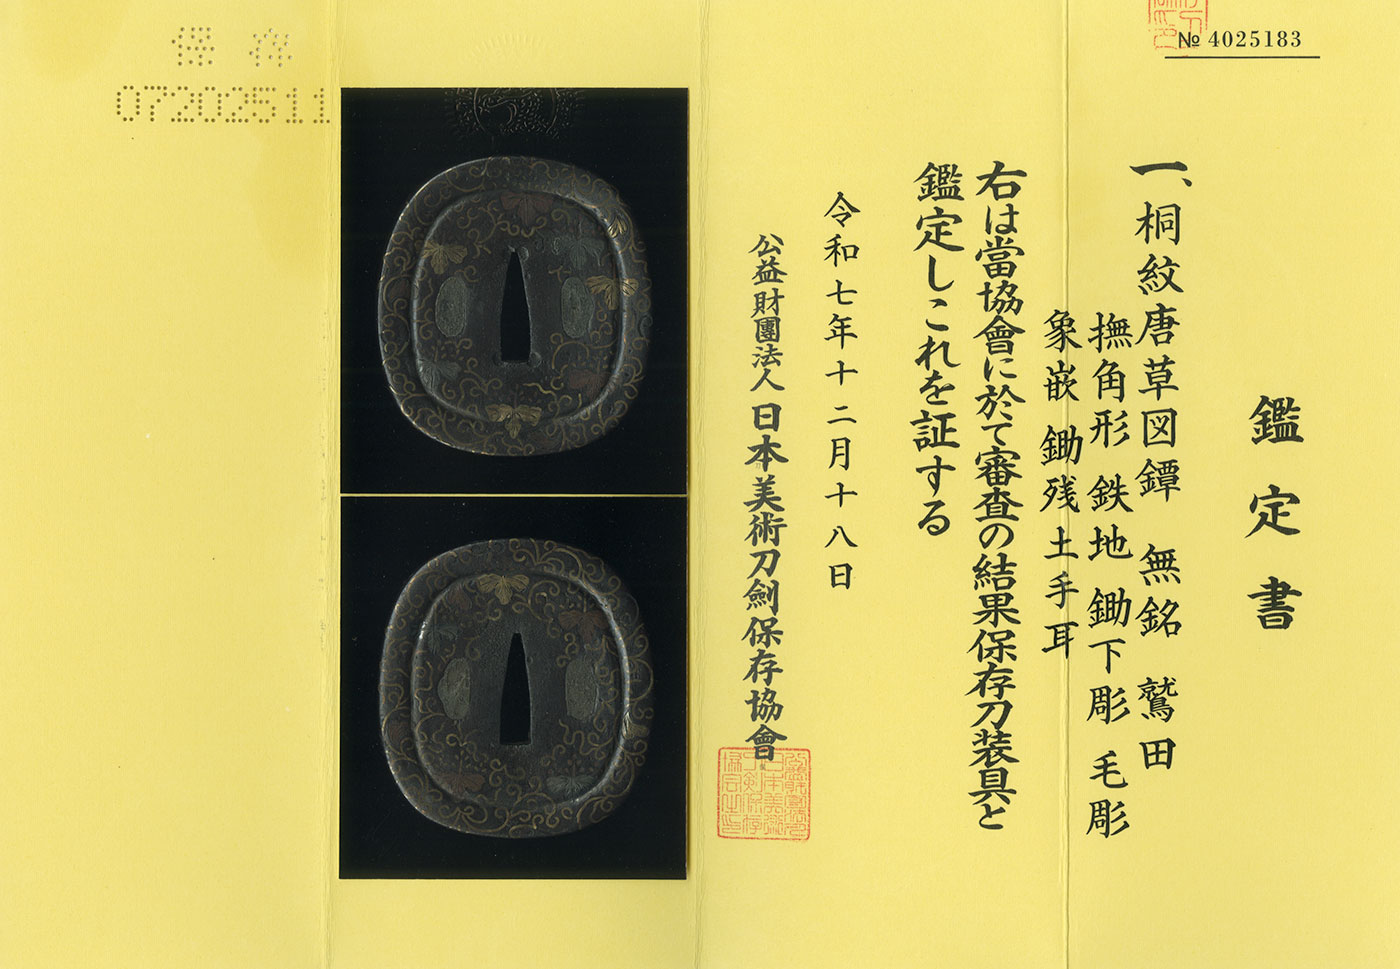 № 4025183
鑑定書
一、桐紋唐草図鐔 無銘 鷲田
撫角形 鉄地 鋤下彫 毛彫
象嵌 鋤残土手耳
右は當協會に於て審査の結果保存刀装具と
鑑定しこれを証する
令和七年十二月十八日
公益財團法人 日本美術刀劍保存協會
保存
0720251１